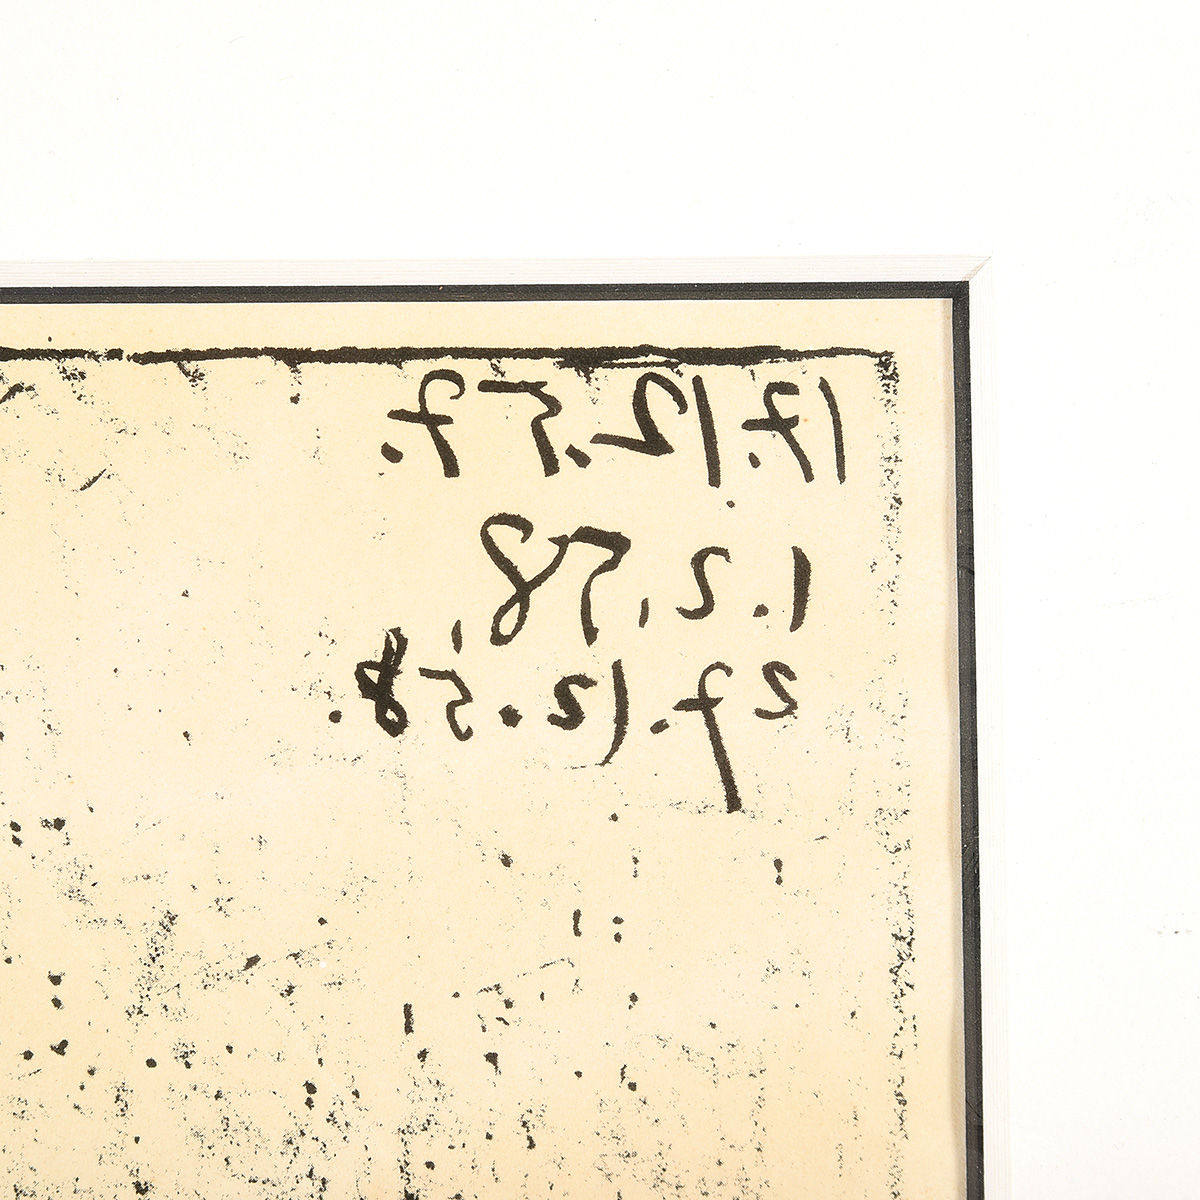 17.12.57.
1.2.58
27.12.58.